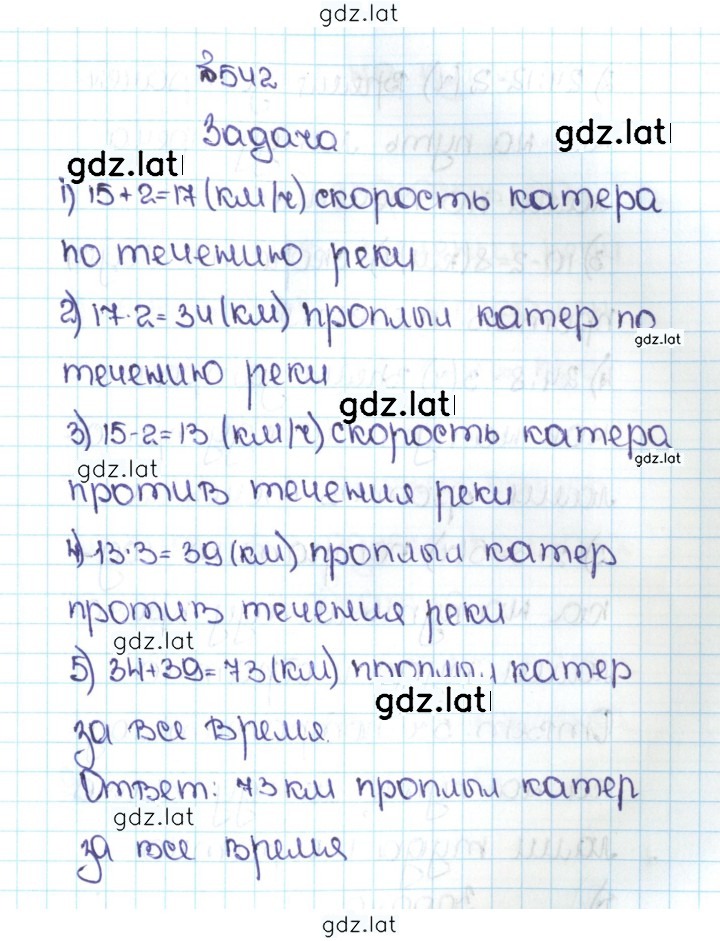 gdz.lat
№542
Задача
gdz.lat
gdz.lat
1) 15+2=17 (км/ч) скорость катера
по течению реки
2) 17·2=34 (км) проплыл катер по
gdz.lat
течению реки
gdz.lat
3) 15-2=13 (км/ч) скорость катера
gdz.lat
gdz.lat
против течения реки
4) 13·3=39 (км) проплыл катер
против течения реки
gdz.lat
5) 34+39=73 (км) проплыл катер
gdz.lat
за все время.
Ответ: 73 км проплыл катер
gdz.lat
за все время
gdz.lat